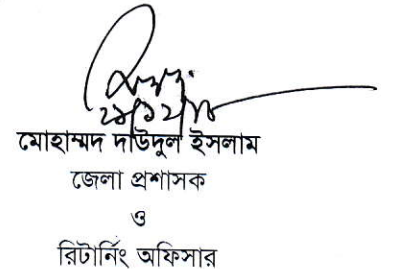 মোহাম্মদ দাউদুল ইসলাম
জেলা প্রশাসক
ও
রিটার্নিং অফিসার